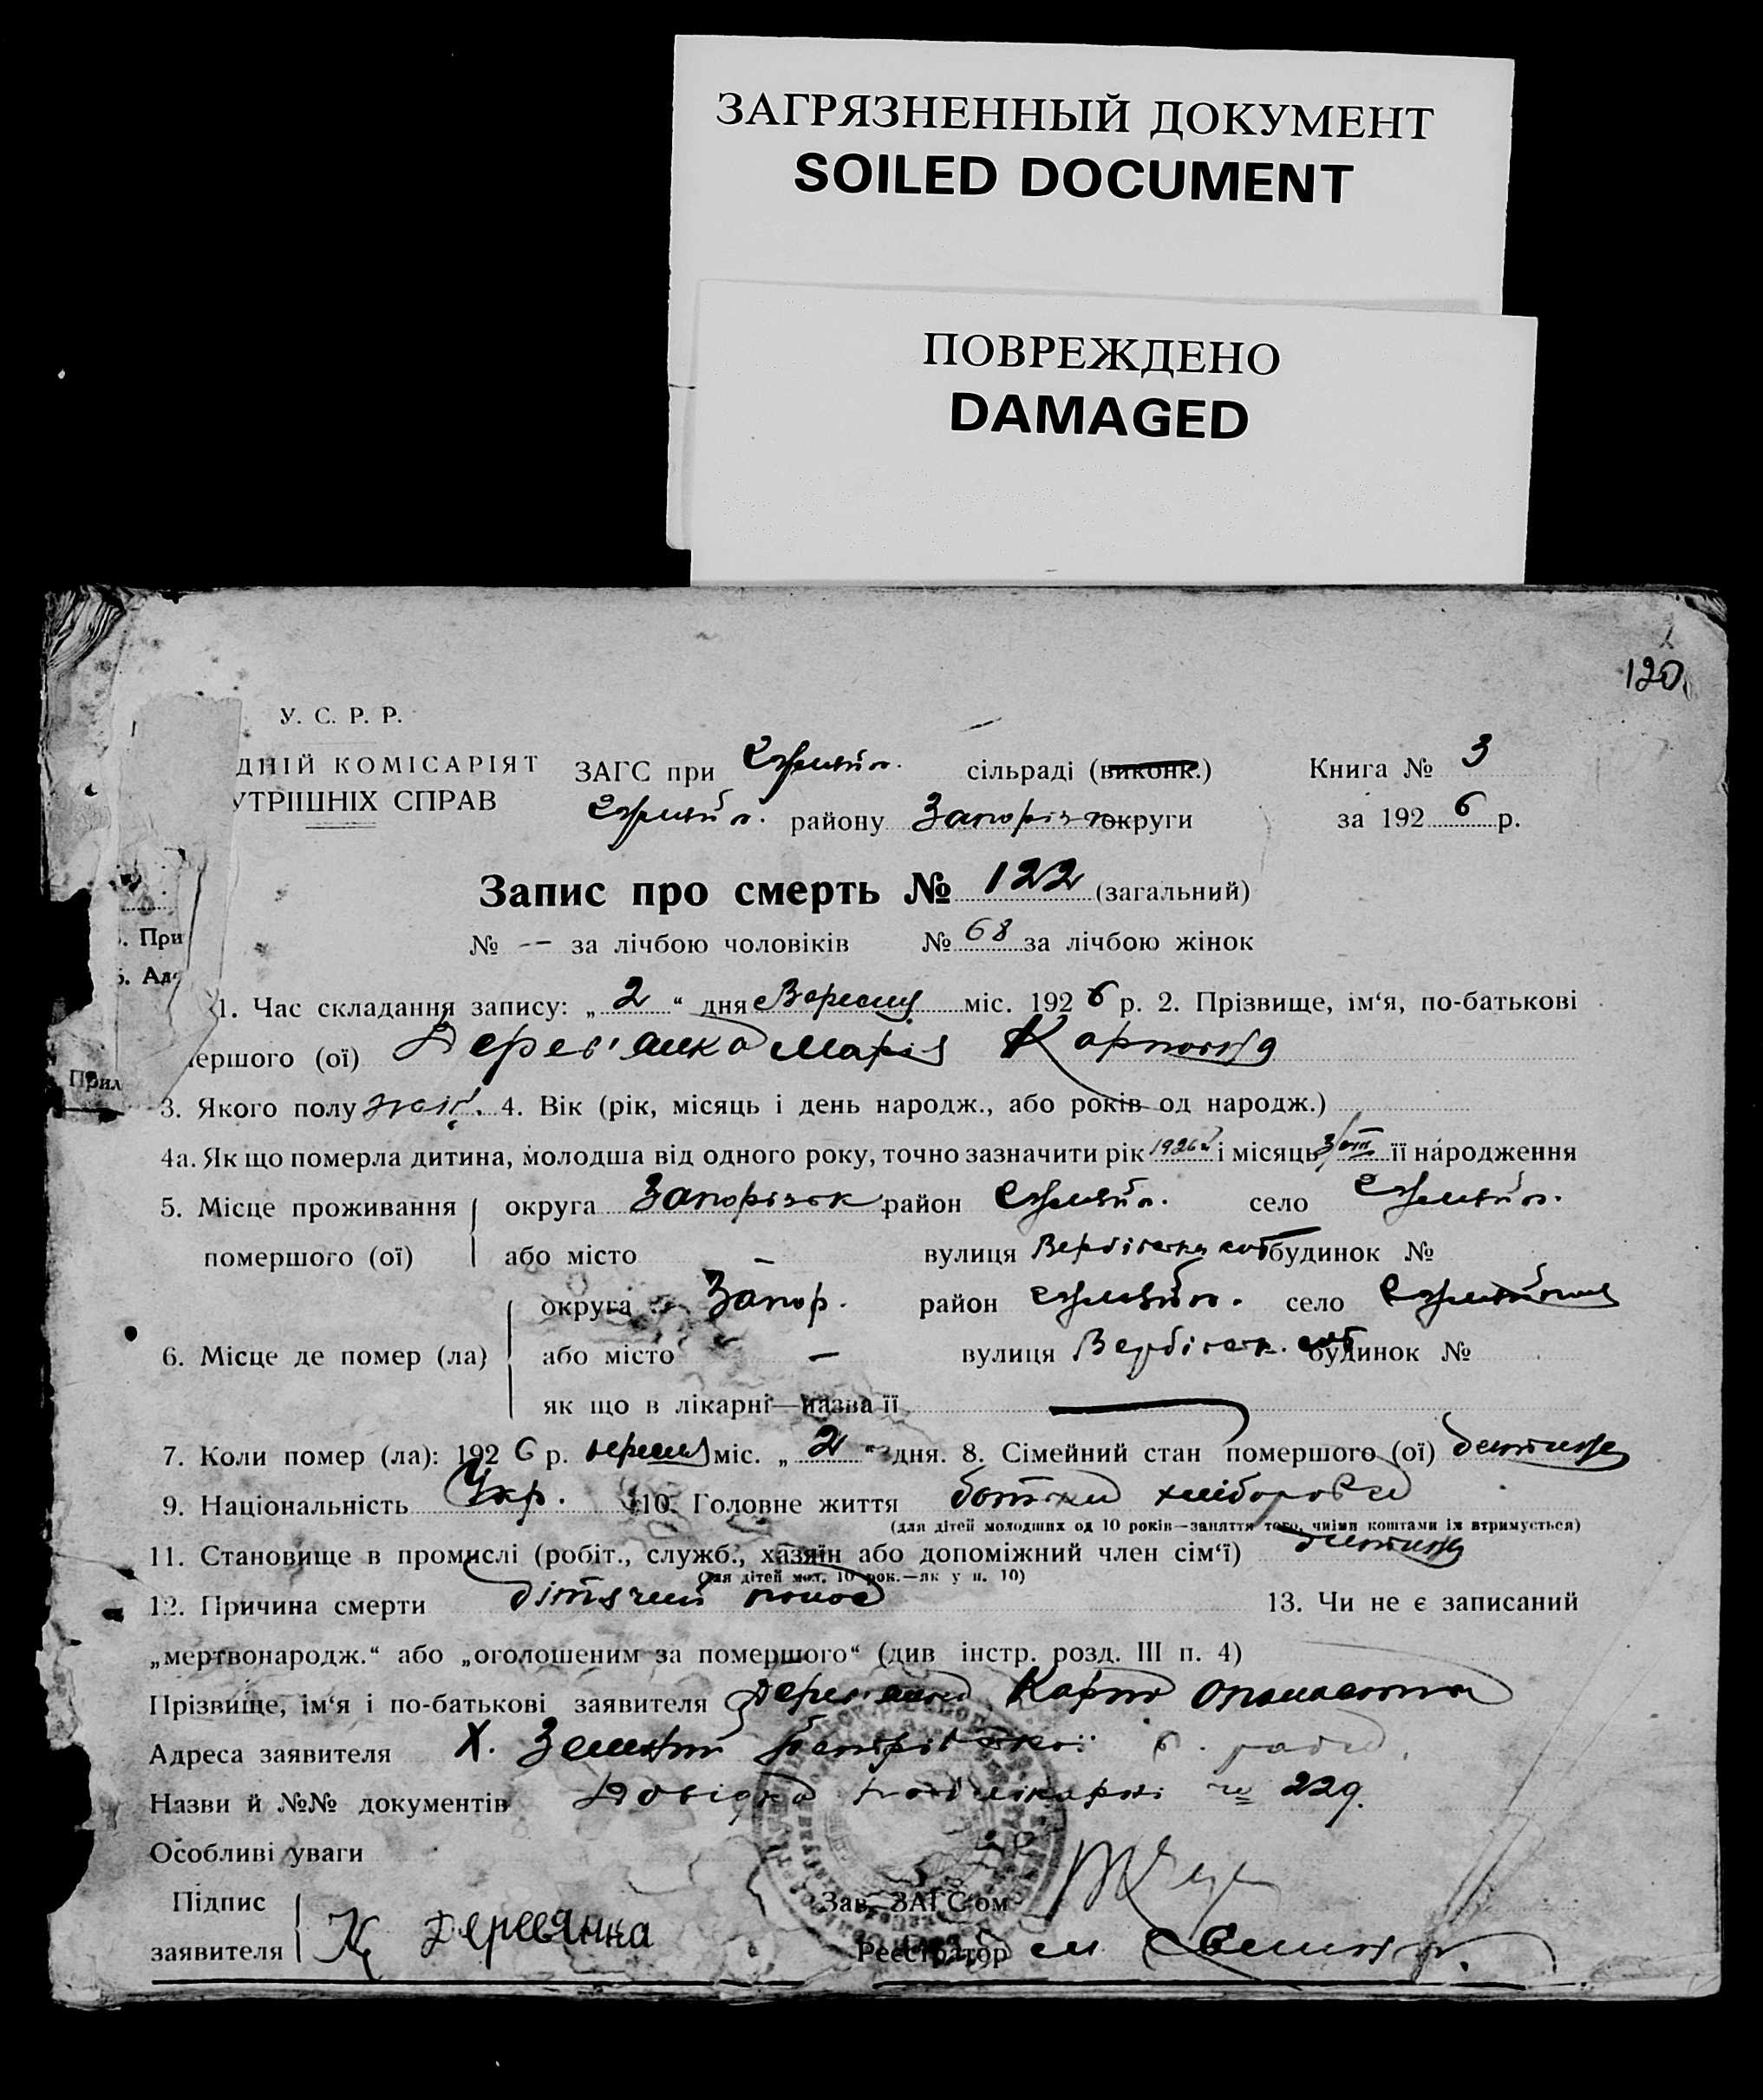 ЗАГРЯЗНЕННЫЙ ДОКУМЕНТ
SOILED DOCUMENT
ПОВРЕЖДЕНО
DAMAGED
120
У. С. Р. Р.
ДНІЙ КОМІСАРІЯТ
УТРІШНІХ СПРАВ
ЗАГС при сільраді (виконк.) Книга № 3
району Запорізьк округи за 1926 р.
Запис про смерть № 122 (загальний)
№ -- за лічбою чоловіків № 68 за лічбою жінок
. При
. Адр
1. Час складання запису: „2“ дня Вересня міс. 1926 р. 2. Прізвище, ім‘я, по-батькові
мершого (ої) Дерев'янко Марія Карповна
Прил
3. Якого полу жін. 4. Вік (рік, місяць і день народж., або років од народж.)
4а. Як що померла дитина, молодша від одного року, точно зазначити рік 1926 і місяць її народження
5. Місце проживання округа Запорізьк район село
помершого (ої) або місто вулиця будинок №
округа Запор. район село
6. Місце де помер (ла) або місто — вулиця будинок №
як що в лікарні—назва її
7. Коли помер (ла): 1926 р. вересня міс. „2“ дня. 8. Сімейний стан помершого (ої) дитина
9. Національність Укр. 10. Головне життя батько хлібороб
(для дітей молодших од 10 років—заняття того, чиїми коштами їх втримується)
11. Становище в промислі (робіт., служб., хазяїн або допоміжний член сім‘ї) дитина
(для дітей мол. 10 рок.—як у п. 10)
12. Причина смерти дітячий понос 13. Чи не є записаний
„мертвонародж.“ або „оголошеним за помершого“ (див інстр. розд. III п. 4)
Прізвище, ім‘я і по-батькові заявителя Дерев'янко Карпо
Адреса заявителя Х.
Назви й №№ документів Довідка лікарні № 229.
Особливі уваги
Підпис Зав. ЗАГС‘ом
заявителя К Деревянка Реєстратор